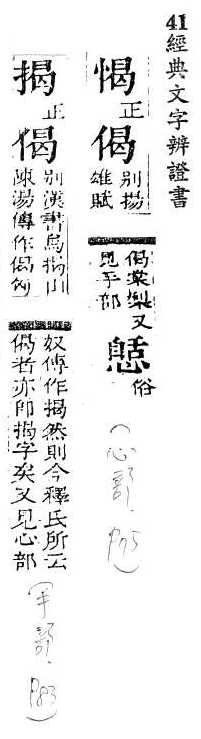 41 經典文字辨證書
愒正
偈別揚
雄賦
偈棠梨又
見手部
憇俗
(心部, P75)
揭正
偈別漢書烏揭山
陳湯傳作偈匈
奴傳作揭然則今釋氏所云
偈者亦即揭字矣又見心部
(手部, P83)